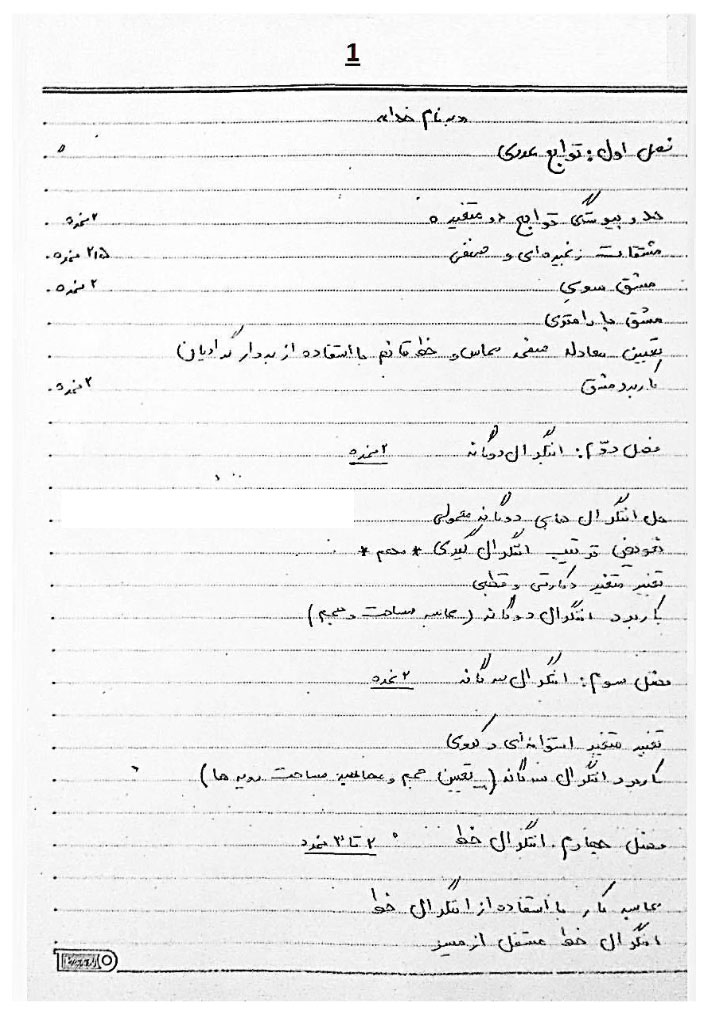 1
«به نام خدا»
فصل اول: توابع عددی
حد و پیوستگی توابع دو متغیره ۲نمره
مشتقات زنجیره‌ای و ضمنی ۲/۵ نمره
مشتق سویی ۲ نمره
مشتق پارامتری
تعیین معادله صفحه مماس و خط قائم با استفاده از بردار گرادیان
کاربرد مشتق ۲ نمره
فصل دوم: انتگرال دوگانه ۲ نمره
حل انتگرال های دوگانه معمولی
تعویض ترتیب انتگرال گیری * مهم *
تغییر متغیر دکارتی و قطبی
کاربرد انتگرال دوگانه (محاسبه مساحت و حجم)
فصل سوم: انتگرال سه گانه ۲ نمره
تغییر متغیر استوانه‌ای و کروی
کاربرد انتگرال سه گانه (تعیین حجم و محاسبه مساحت رویه ها)
فصل چهارم: انتگرال خط ۲ تا ۳ نمره
محاسبه کار با استفاده از انتگرال خط
انتگرال خط مستقل از مسیر